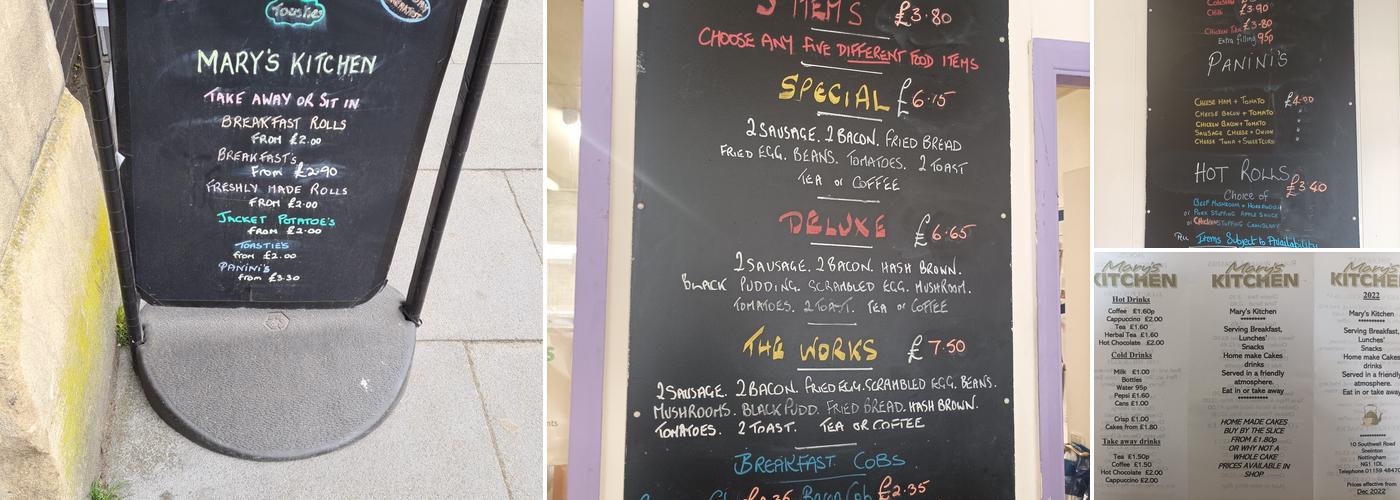 Toasties
MARY'S KITCHEN
TAKE AWAY OR SIT IN
BREAKFAST ROLLS
FROM £2.00
BREAKFAST'S
From £2.90
FRESHLY MADE ROLLS
FROM £2.00
JACKET POTATOE'S
from £2.00
TOASTIE'S
from £2.00
PANINI'S
from £3.30
5 ITEMS £3.80
CHOOSE ANY FIVE DIFFERENT FOOD ITEMS
SPECIAL £6.15
2 SAUSAGE. 2 BACON. FRIED BREAD
FRIED EGG. BEANS. TOMATOES. 2 TOAST
TEA or COFFEE
DELUXE £6.65
2 SAUSAGE. 2 BACON. HASH BROWN.
BLACK PUDDING. SCRAMBLED EGG. MUSHROOM.
TOMATOES. 2 TOAST. TEA or COFFEE
THE WORKS £7.50
2 SAUSAGE. 2 BACON. FRIED EGG. SCRAMBLED EGG. BEANS.
MUSHROOMS. BLACK PUDD. FRIED BREAD. HASH BROWN.
TOMATOES. 2 TOAST. TEA OR COFFEE
BREAKFAST COBS
Bacon Cob £2.35
£3.90
Chilli
£3.80
Extra filling 95p
PANINI'S
CHEESE HAM + TOMATO £4.00
CHEESE BACON + TOMATO "
CHICKEN BACON + TOMATO "
SAUSAGE CHEESE + ONION "
CHEESE TUNA + SWEETCORN "
HOT ROLLS £3.40
Choice of
BEEF MUSHROOM + HORSERADISH
or PORK STUFFING APPLE SAUCE
or CHICKEN STUFFING CRANBERRY
Items Subject to Availability
Mary's
KITCHEN
Hot Drinks
Coffee £1.60p
Cappuccino £2.00
Tea £1.60
Herbal Tea £1.60
Hot Chocolate £2.00
Cold Drinks
Milk £1.00
Bottles
Water 95p
Pepsi £1.60
Cans £1.00
Crisp £1.00
Cakes from £1.80
Take away drinks
Tea £1.50p
Coffee £1.50
Hot Chocolate £2.00
Cappuccino £2.00
Mary's
KITCHEN
Mary's Kitchen
**********
Serving Breakfast,
Lunches'
Snacks
Home make Cakes
drinks
Served in a friendly
atmosphere.
Eat in or take away
**********
HOME MADE CAKES
BUY BY THE SLICE
FROM £1.80p
OR WHY NOT A
WHOLE CAKE
PRICES AVAILABLE IN
SHOP
Mary's
KITCHEN
2022
Mary's Kitchen
**********
Serving Breakfast,
Lunches'
Snacks
Home make Cakes
drinks
Served in a friendly
atmosphere.
Eat in or take away
**********
10 Southwell Road
Sneinton
Nottingham
NG1 1DL
Telephone 01159
Prices effective from:
Dec 2022